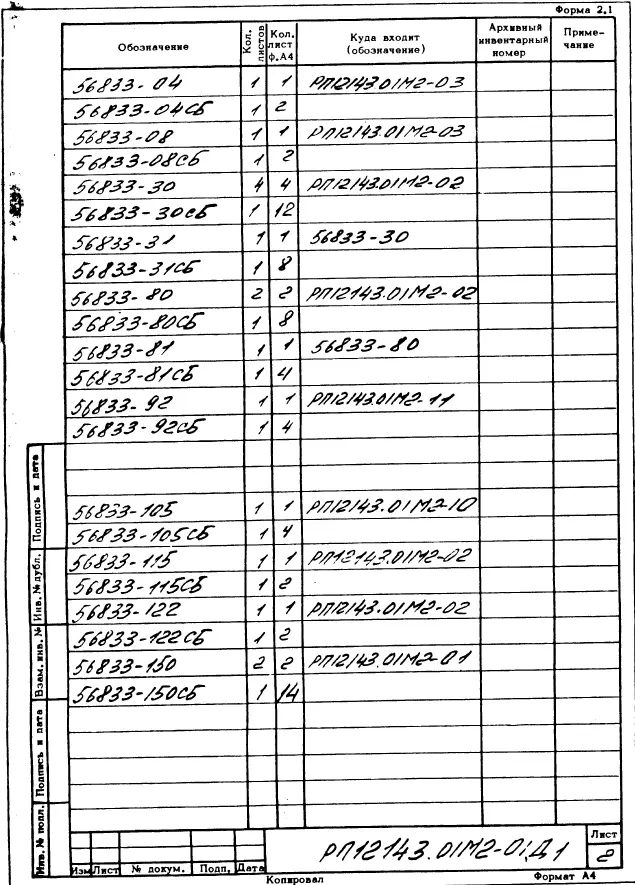 Форма 2.1
Обозначение Кол. листов Кол. лист ф.А4 Куда входит (обозначение) Архивный инвентарный номер Примечание
56833-04 1 1 РП12143.01М2-03
56833-04СБ 1 2
56833-08 1 1 РП12143.01М2-03
56833-08СБ 1 2
56833-30 4 4 РП12143.01М2-02
56833-30СБ 1 12
56833-31 1 1 56833-30
56833-31СБ 1 8
56833-80 2 2 РП12143.01М2-02
56833-80СБ 1 8
56833-81 1 1 56833-80
56833-81СБ 1 4
56833-92 1 1 РП12143.01М2-11
56833-92СБ 1 4
56833-105 1 1 РП12143.01М2-10
56833-105СБ 1 4
56833-115 1 1 РП12143.01М2-02
56833-115СБ 1 2
56833-122 1 1 РП12143.01М2-02
56833-122СБ 1 2
56833-150 2 2 РП12143.01М2-01
56833-150СБ 1 14
Подпись и дата
Инв. № дубл.
Взам. инв. №
Подпись и дата
Инв. № подл.
РП12143.01М2-0;Д1
Лист
2
Изм Лист № докум. Подп. Дата
Копировал Формат А4